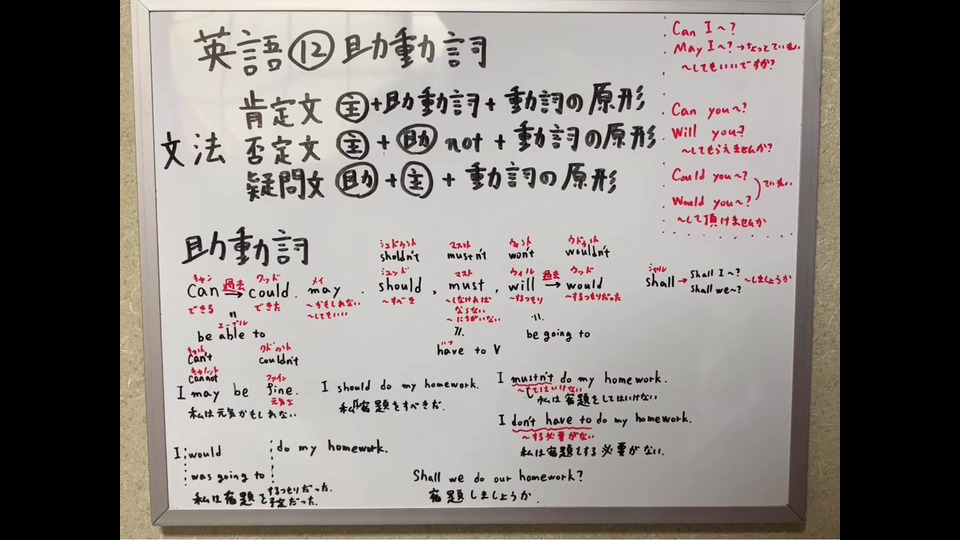 英語⑫助動詞
文法
肯定文 主+助動詞+動詞の原形
否定文 主+助 not+動詞の原形
疑問文 助+主+動詞の原形
Can I～?
May I～? →ちょっとていねい
～してもいいですか?
Can you～?
Will you～?
～してもらえませんか?
Could you～?
Would you～?
ていねい
～して頂けませんか
助動詞
シュドゥント マスント ウォント ウドゥント
sholdn't mustn't won't wouldn't
キャン 過去 クッド メイ シュッド マスト ウィル 過去 ウッド
can → could. may. should, must, will → would
できる できた ～かもしれない ～すべき ～しなければ ～するつもり ～するつもりだった
～してもいい ならない
～にちがいない
シャル
shall → Shall I～?
Shall we～?
～しましょうか
エーブル
be able to
have to V
be going to
キャント クドゥント
can't couldn't
キャノット
cannot
ファイン
I may be fine.
元気な
私は元気かもしれない
I should do my homework.
私は宿題をすべきだ.
I mustn't do my homework.
～してはいけない
私は宿題をしてはいけない
I don't have to do my homework.
～する必要がない
私は宿題をする必要がない.
I would do my homework.
was going to
私は宿題をするつもりだった.
予定だった.
Shall we do our homework?
宿題しましょうか.